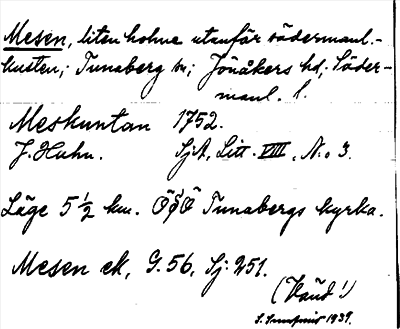 Mesen, liten holme utanför södermanl.-
kusten; Tunaberg sn; Jönåkers hd; Söder-
manl. l.
Meskuntan 1752.
J. Hahn. SjA, Litt. VIII, N:o 3.
Läge 5 ½ km. ÖSÖ Tunabergs kyrka.
Mesen ek, G. 56, Sj: 251.
(Vänd!)
1939.